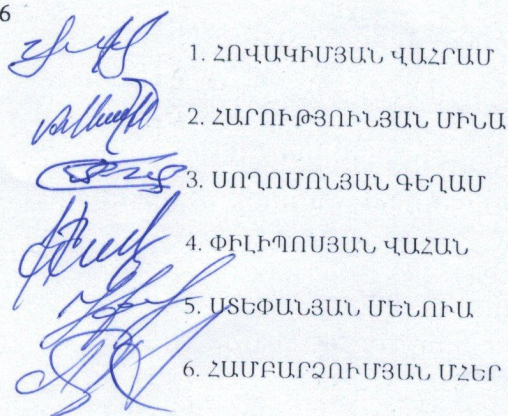 6
1. ՀՈՎԱԿԻՄՅԱՆ ՎԱՀՐԱՄ
2. ՀԱՐՈՒԹՅՈՒՆՅԱՆ ՄԻՆԱ
3. ՍՈՂՈՄՈՆՅԱՆ ԳԵՂԱՄ
4. ՓԻԼԻՊՈՍՅԱՆ ՎԱՀԱՆ
5. ՍՏԵՓԱՆՅԱՆ ՄԵՆՈՒԱ
6. ՀԱՄԲԱՐՁՈՒՄՅԱՆ ՄՀԵՐ